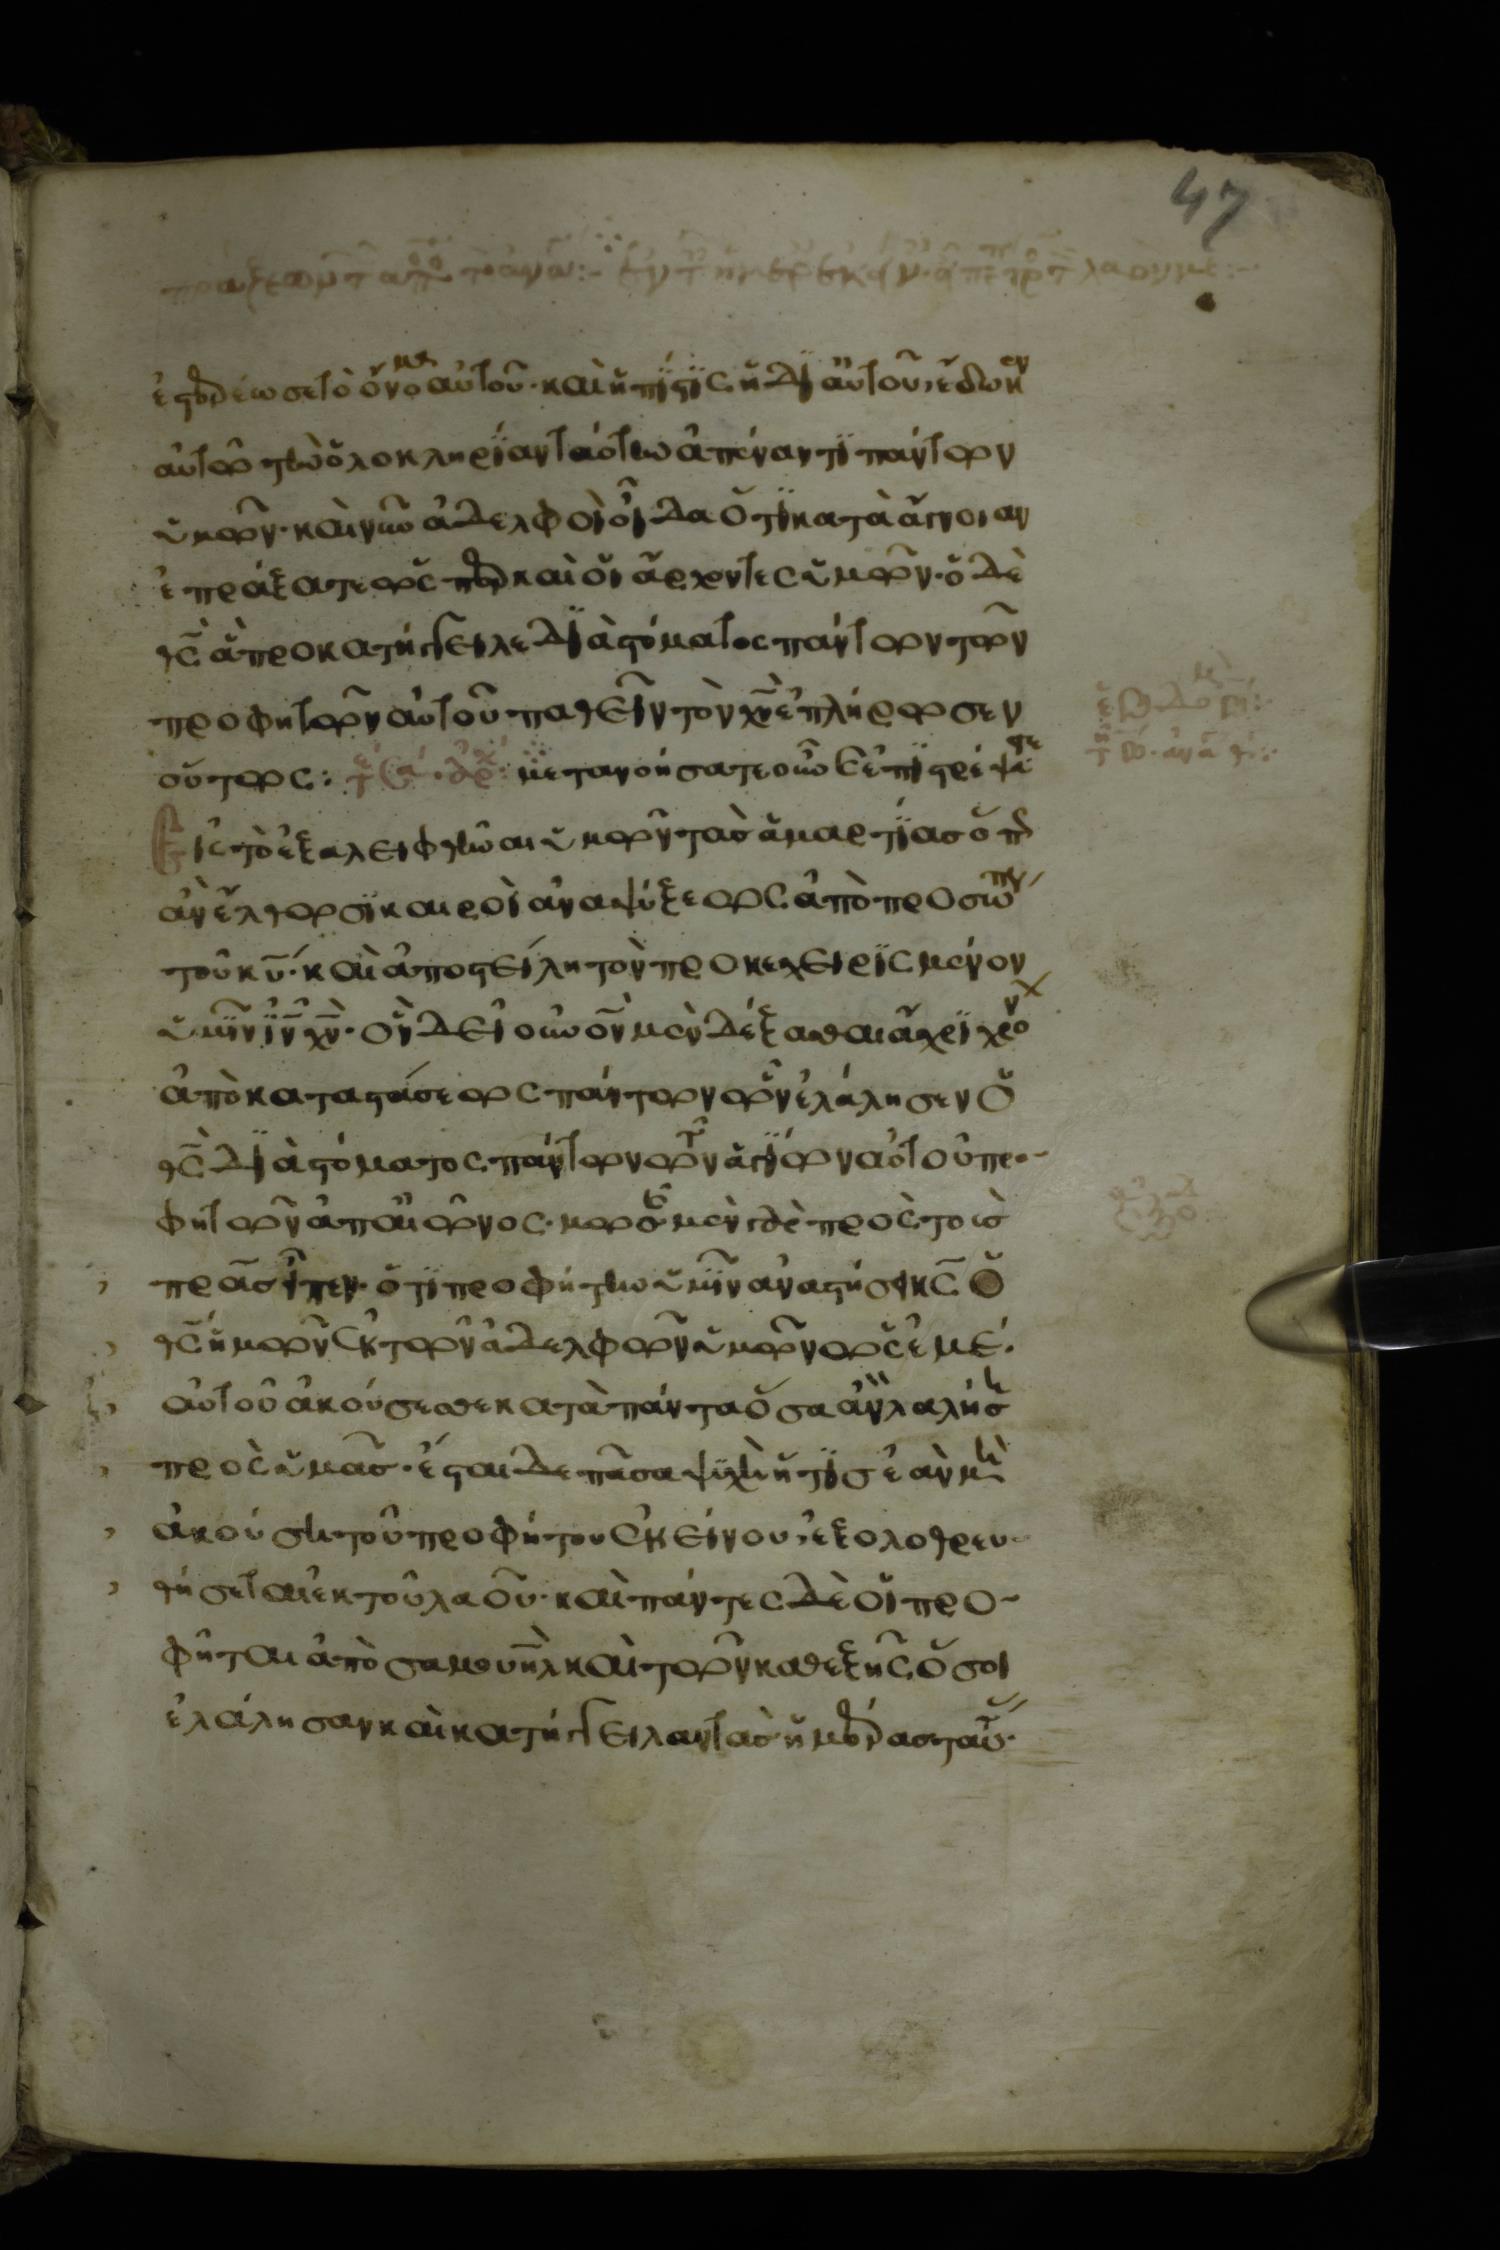 47
πραξεων τ απο το αναγ:- Εν τ ημερ εκειν. ο πετρ τ λαον με:-
ἐστερέωσε τὸ ὄνομα αὐτοῦ· καὶ ἡ πίστις ἡ δι αὐτοῦ, ἔδωκεν
αὐτῶ τὴν ὁλοκληρίαν ταύτην ἀπέναντι πάντων
ὑμῶν· καὶ νῦν ἀδελφοὶ οἶδα ὅτι κατὰ ἄγνοιαν
ἐπράξατε ὥσπερ καὶ οἱ ἄρχοντες ὑμῶν· ὁ δὲ
θς ἃ προκατήγγειλε διὰ στόματος πάντων τῶν
προφητῶν αὐτοῦ παθεῖν τὸν χν ἐπλήρωσεν
οὕτως: μετανοήσατε οὖν καὶ ἐπιστρέψατε
εἰς τὸ ἐξαλειφθῆναι ὑμῶν τὰς ἁμαρτίας ὅπ
ἂν ἔλθωσι καιροὶ ἀναψύξεως ἀπὸ προσώπου
τοῦ κυ· καὶ ἀποστείλη τὸν προκεχειρισμένον
ὑμῖν ιν χν· ὃν δεῖ οὐνον μὲν δέξασθαι ἄχρι χρόνων
ἀποκαταστάσεως πάντων ὧν ἐλάλησεν ὁ
θς διὰ στόματος πάντων τῶν ἁγίων αὐτοῦ προ-
φητῶν ἀπ αἰῶνος· μωσῆς μὲν γὰρ πρὸς τοὺς
πρας εἶπεν· ὅτι προφήτην ὑμῖν ἀναστήσει κς ὁ
θς ἡμῶν ἐκ τῶν ἀδελφῶν ὑμῶν ὡς ἐμέ·
αὐτοῦ ἀκούσεσθε κατὰ πάντα ὅσα ἂν λαλήση
πρὸς ὑμᾶς· ἔσται δε πᾶσα ψυχὴ ἥτις ἐὰν μὴ
ἀκούση τοῦ προφήτου ἐκείνου, ἐξολοθρευ-
θήσεται ἐκ τοῦ λαοῦ· καὶ πάντες δὲ οἱ προ-
φῆται ἀπὸ σαμουὴλ καὶ τῶν καθεξῆς ὅσοι
ἐλάλησαν καὶ κατήγγειλαν τὰς ἡμέρας ταύτ·